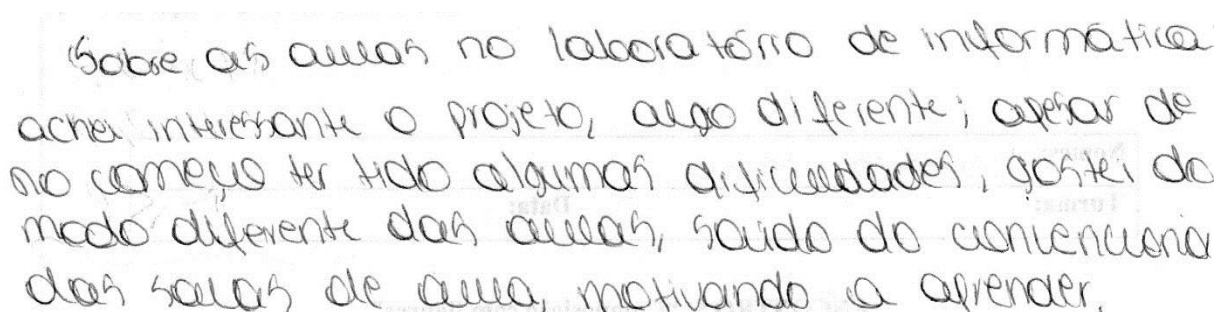 Sobre as aulas no laboratório de informática
achei interessante o projeto, algo diferente; apesar de
no começo ter tido algumas dificuldades, gostei do
modo diferente das aulas, saido do convenciona
das salas de aula, motivando a aprender.
Nomes:
Turma:
Data: